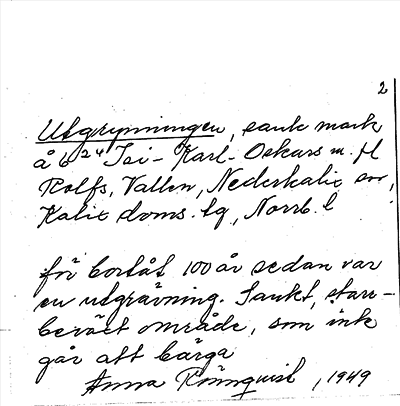 2
Utgrynningen, sank mark
å 6 24 Isi - Karl - Oskars m. fl
Rolfs, Vallen, Nederkalix sn,
Kalix doms. tg, Norrb. l
för bortåt 100 år sedan var
en utgrävning. Sankt, starr-
beväxt område, som ink
går att bärga
Anna Rönnqvist, 1949